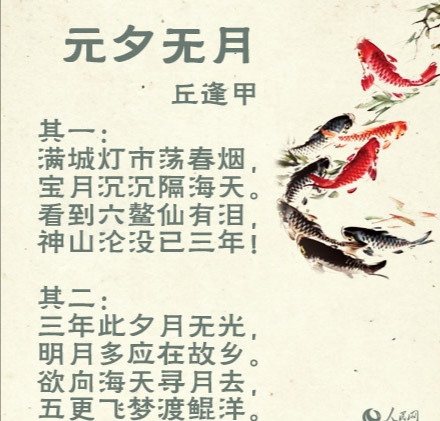 元夕无月
丘逢甲
其一：
满城灯市荡春烟，
宝月沉沉隔海天。
看到六鳌仙有泪，
神山沦没已三年！
其二：
三年此夕月无光，
明月多应在故乡。
欲向海天寻月去，
五更飞梦渡鲲洋。
人民网